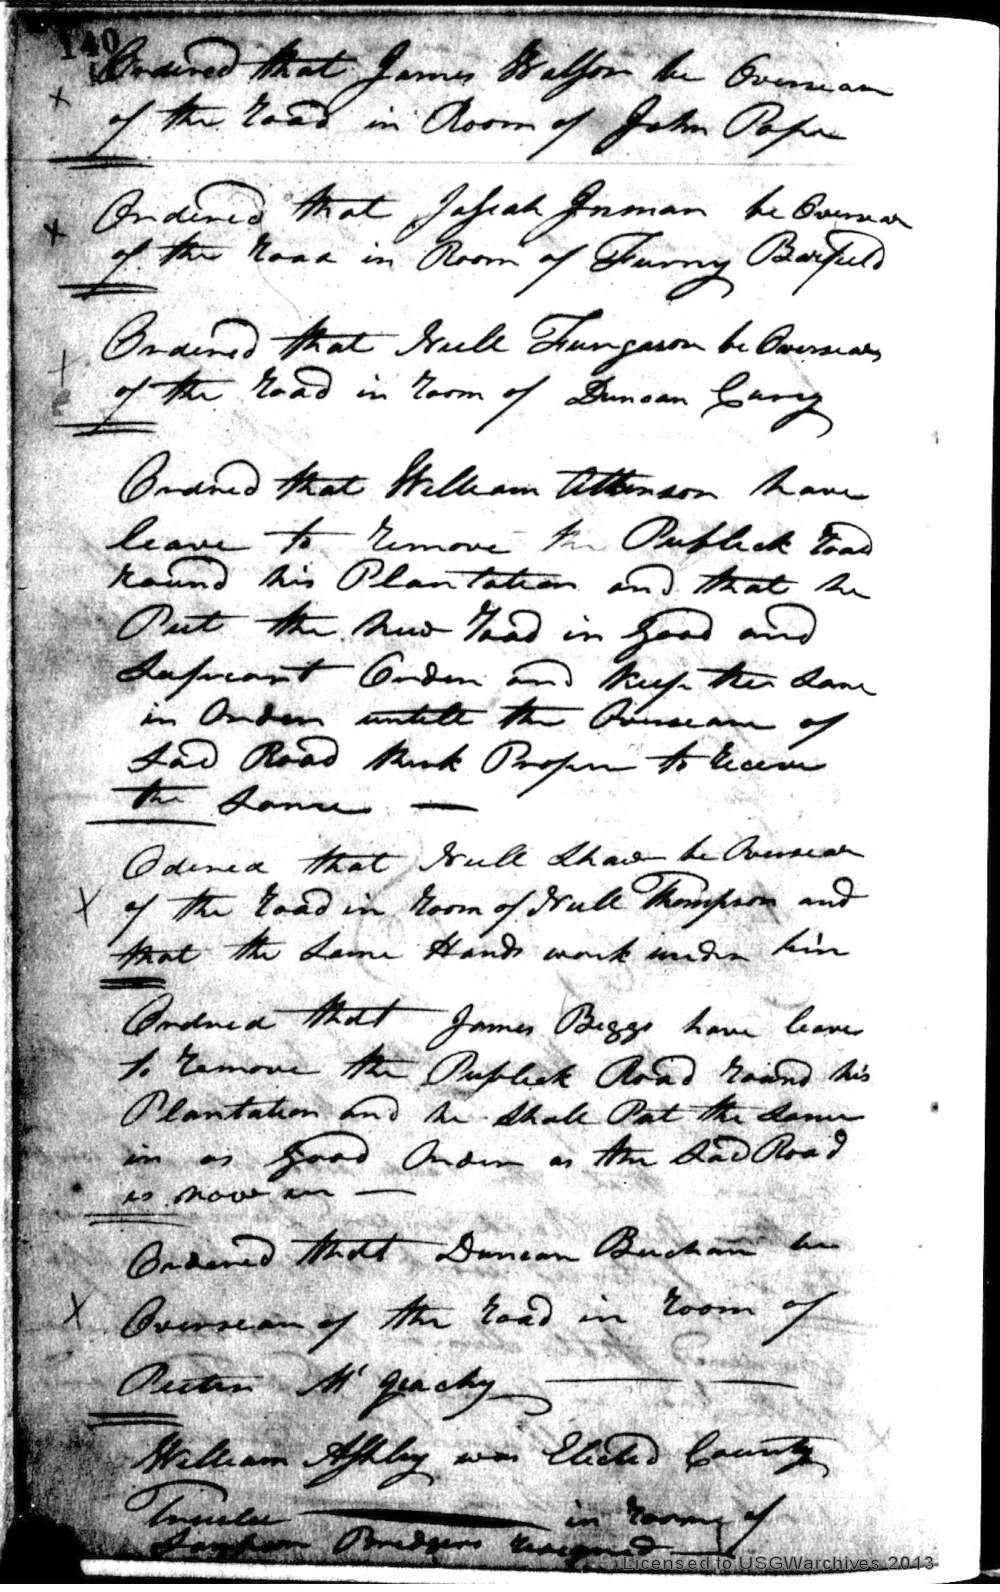 140
Ordered that James Watson be Overseear
of the road in Room of John Pope
Ordered that Josiah Inman be Overseear
of the road in Room of Furny Barfield
Ordered that Neill Furgason be Overseear
of the road in room of Duncan Curry
Ordred that William Attkinson have
leave to remove the Publick road
round his Plantation and that he
Put the new road in Good and
Order and keep the same
in Order untill the Overseear of
Sad Road think Proper to receive
the Same —
Odered that Neill Shaw be Overseear
of the road in room of Neill Thompson and
that the Same Hands work under him
Ordred that James Beggs have leave
to remove the Publick Road round his
Plantation and he Shall Put the Same
in as Good Order as the Sad Road
is now in —
Ordered that Duncan Buchan be
Overseear of the road in room of
Peeter Mc Geachy
William Ashley was Elected County
Trustee in room of
Sampson Bridgers resigned
Licensed to USGWarchives 2013